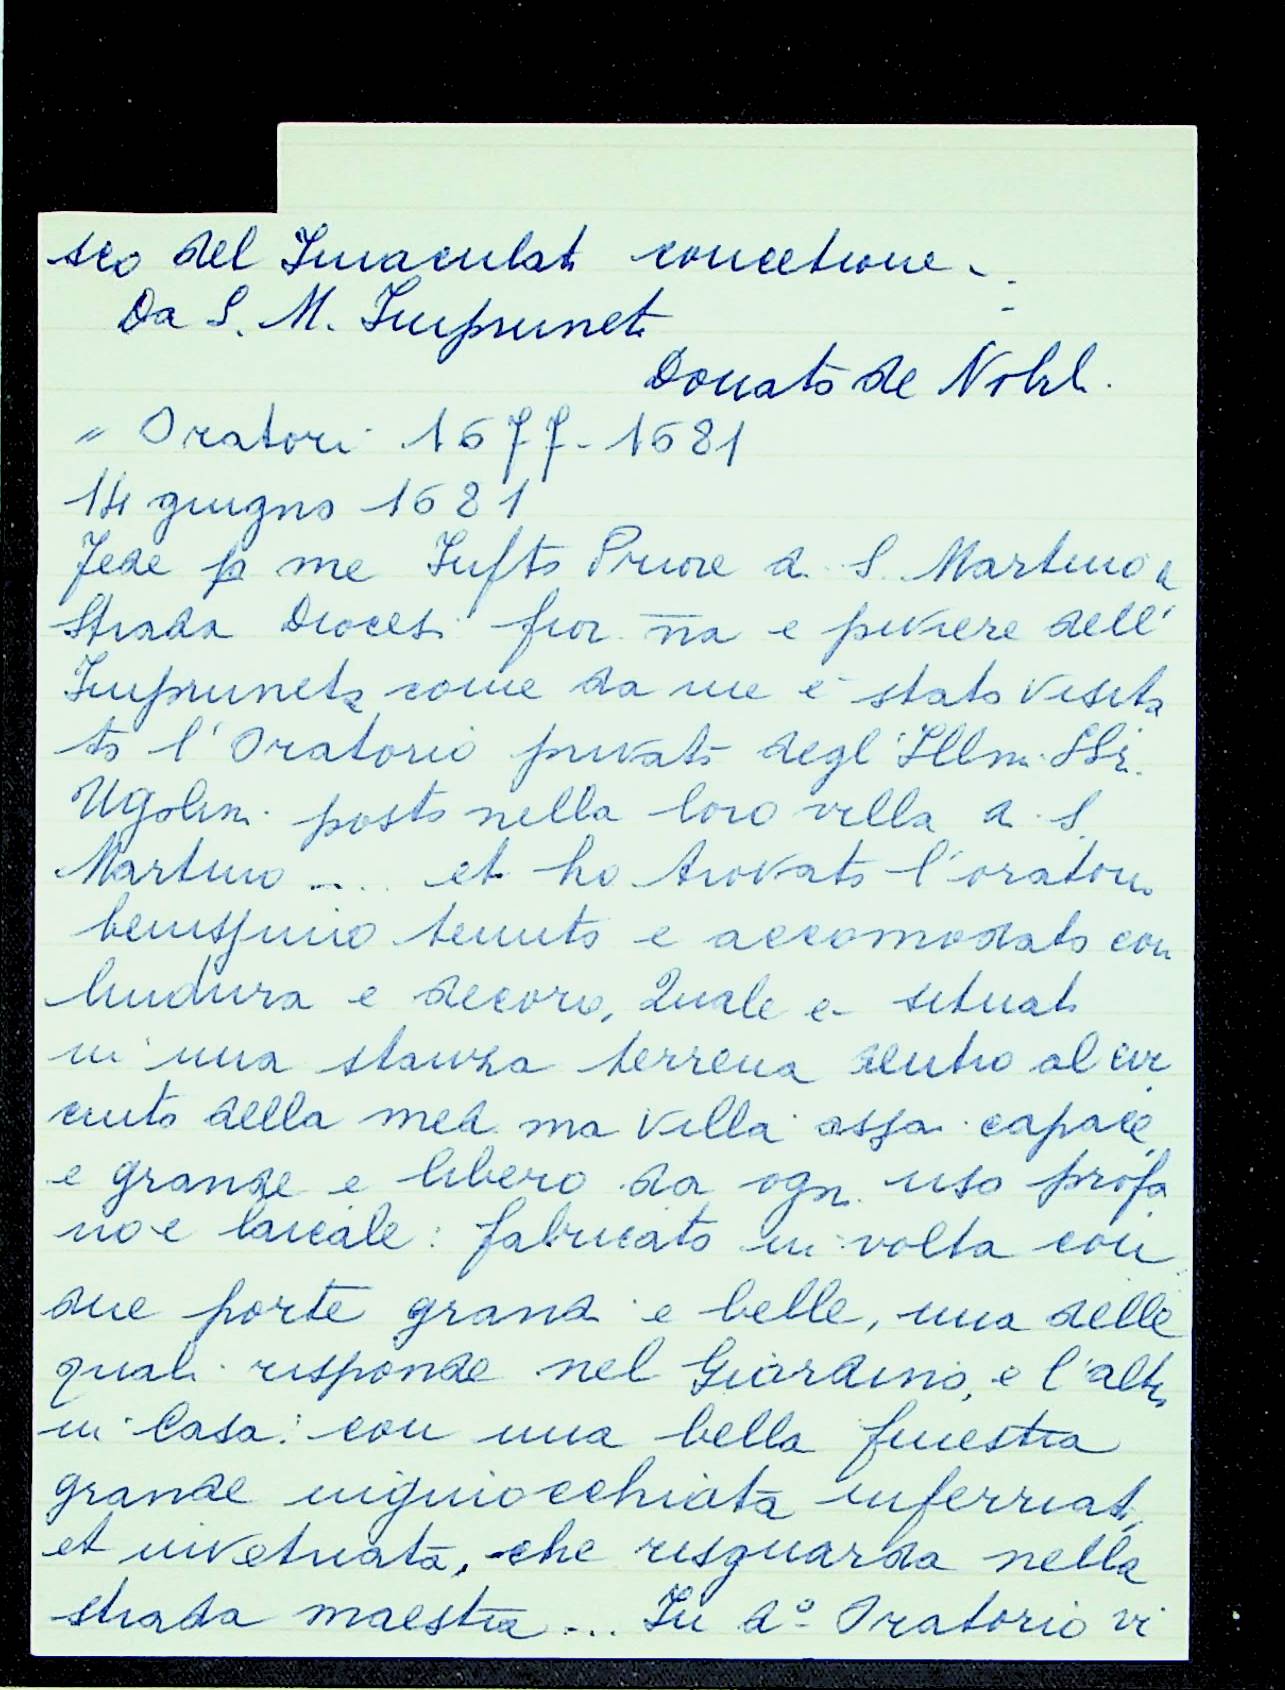 sco del Imaculata concetione -
Da S. M. Impruneta
Donato de Nobili.
" Oratori 1677-1681
14 giugno 1681
Fede p me Infto Priore di S. Martino a
Strada Diocesi fior.na e piviere dell'
Impruneta come da me è stato visita
to l'Oratorio privato degl'Illmi SSri.
Ugolini posto nella loro villa di S.
Martino .... et ho trovato l'oratorio
benissimo tenuto e accomodato con
lindura e decoro, Quale è situato
in una stanza terrena dentro al cir
cuito della med.ma Villa assai capace
e grande e libero da ogni uso profa
no e laicale: fabricato in volta con
due porte grandi e belle, una delle
quali risponde nel Giardino, e l'altra
in Casa: con una bella finestra
grande inginocchiata inferriata
et invetriata, che risguarda nella
strada maestra ... In d.º Oratorio vi